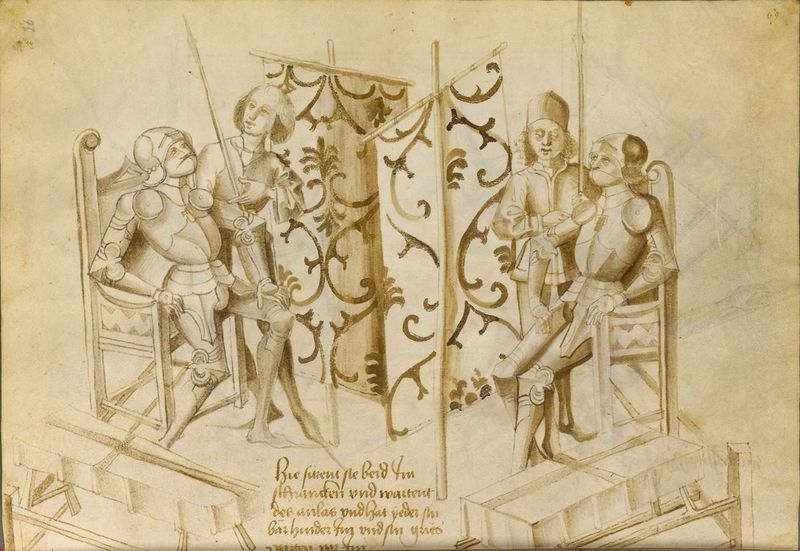 69
Hie sitzent sie beid Inn
schrancken vnd wartent
des anlas vnd hat yeder sin
bar hinder Im vnd sin gries
warten vor Im